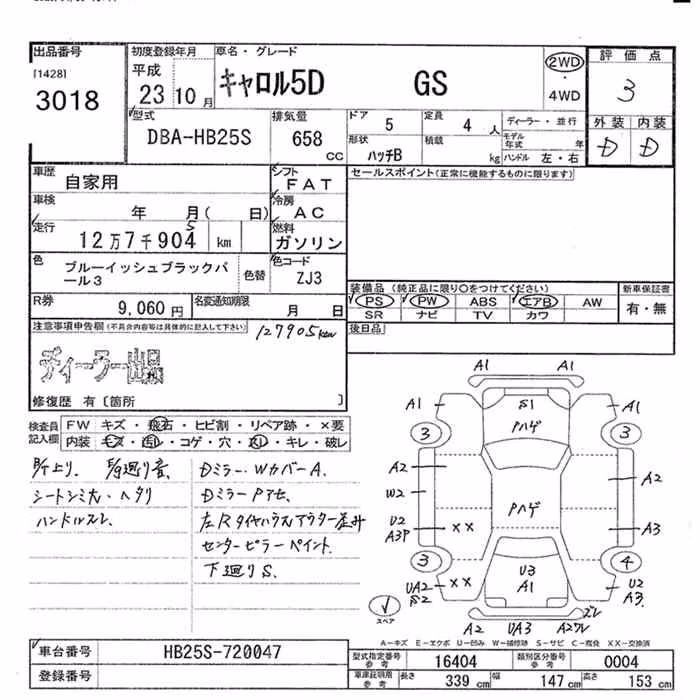 出品番号
[1428]
3018
初度登録年月
平成
23 10月
車名・グレード
キャロル5D GS
2WD
・
4WD
評価点
3
外装 内装
D D
型式
DBA-HB25S
排気量
658
CC
ドア
5
定員
4 人
ディーラー・並行
形状
ハッチB
積載
kg
モデル年式 年
ハンドル 左・右
車歴
自家用
シフト
FAT
セールスポイント(正常に機能するものに限ります)
車検
年 月( 日)
冷房
AC
走行
12万7千904 km
5
燃料
ガソリン
色
ブルーイッシュブラックパール3
色替
色コード
ZJ3
装備品 (純正品に限り○をつけてください)
新車保証書
PS PW ABS エアB AW
有・無
SR ナビ TV カワ
R券
9,060円
名変通知期限
月 日
後日品
注意事項申告欄(不具合内容等は具体的に記入して下さい)
127905km
ディーラー出品
修復歴 有〔箇所 〕
検査員記入欄
FW キズ・飛石・ヒビ割・リペア跡・×要
内装 キズ・汚れ・コゲ・穴・スレ・キレ・破レ
シートシミ大・ヘタリ
ハンドルスレ
Dミラー・WカバーA.
左Rタイヤハウスアウター歪み
センターピラーペイント.
下廻りS.
A1 A1
A1 S1 A1
3 Pハゲ 3
A2 A2
W2 Pハゲ
U2 ×× A3
A3P
3 U3 4
UA2 ×× A1 U2
S2 A3
スペア
A2 UA3 A2ワレ ズレ
A-キズ E-エクボ U-凹み W-補修跡 S-サビ C-腐蝕 XX-交換済
車台番号 HB25S-720047
登録番号
型式指定番号 参考 16404
類別区分番号 参考 0004
車庫証明用 参考 長さ 339 cm 幅 147 cm 高さ 153 cm